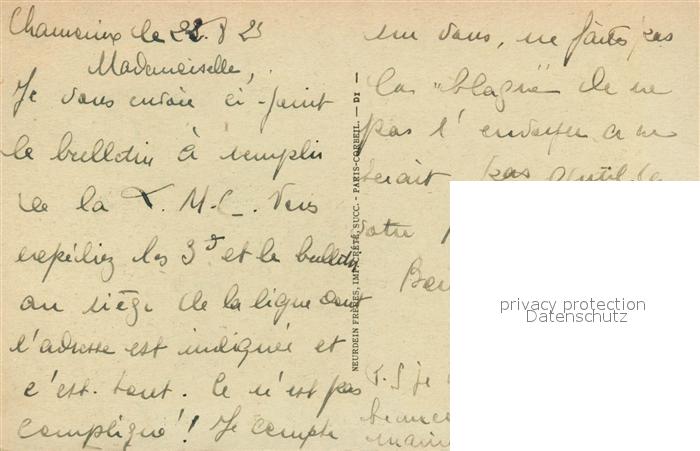 Chamonix le 22.8 25
Mademoiselle,
Je vous envoie ci-joint
le bulletin à remplir
de la L. M. C. Vous
expédiez les 3 et le bulletin
au siège de la ligue dont
l'adresse est indiquée et
c'est tout. Ce n'est pas
compliqué! Je compte
sur vous, ne faites pas
la "blague" de ne
pas l'envoyer ce ne
serait pas gentil.
votre
P. S je
NEURDEIN FRÈRES, IMP. CRÉTÉ, SUCC. - PARIS-CORBEIL. — DI —
privacy protection
Datenschutz